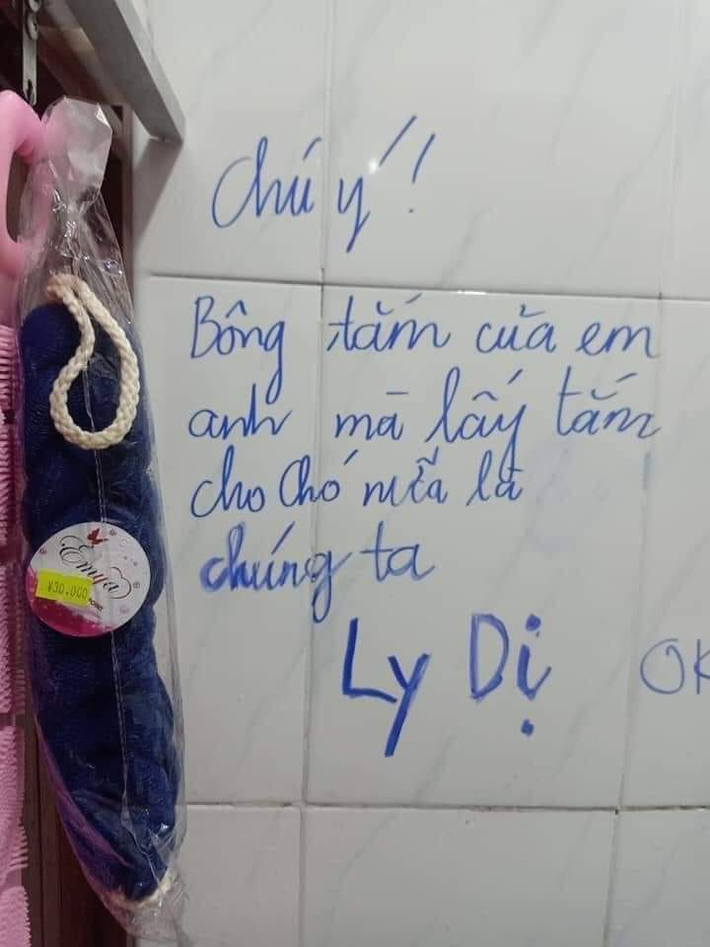 Chú ý!
Bông tắm của em
anh mà lấy tắm
cho chó nữa là
chúng ta
Ly Dị
OK
Emya
¥30.000